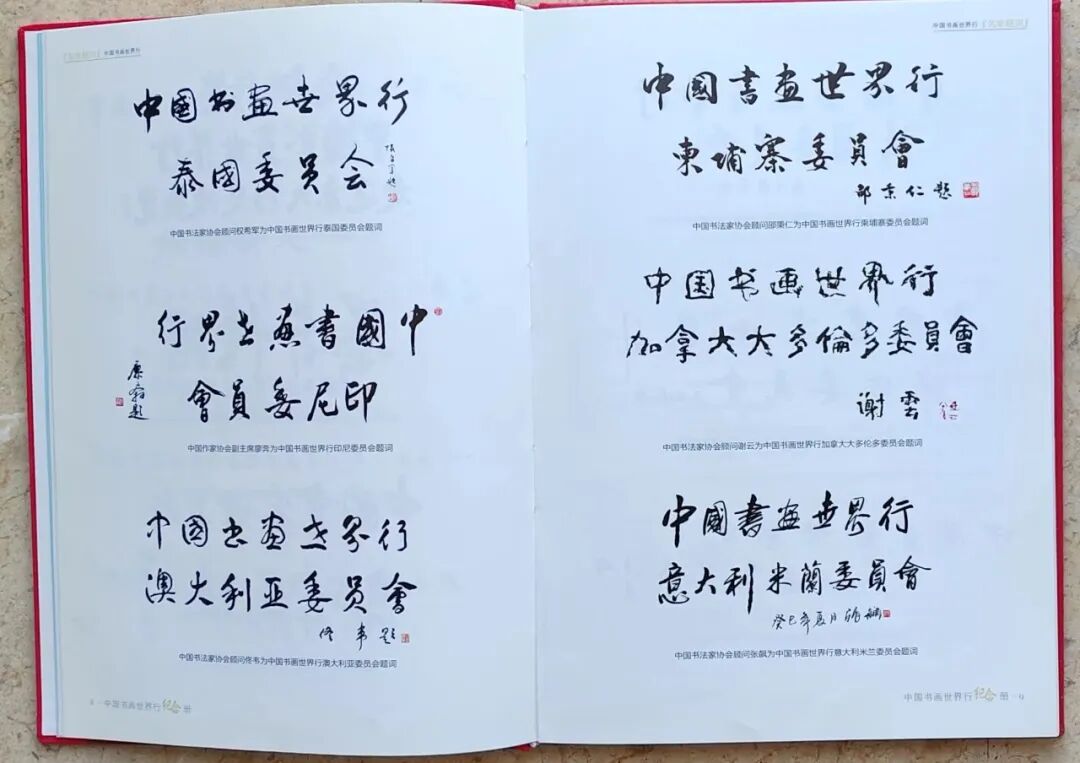 中国书画世界行
中国书画世界行
泰國委员会
中国书法家协会顾问权希军为中国书画世界行泰国委员会题词
行界世画書國中
會員委尼印
廖奔題
中国作家协会副主席廖奔为中国书画世界行印尼委员会题词
中国书画世界行
澳大利亚委员會
佟韦题
中国书法家协会顾问佟韦为中国书画世界行澳大利亚委员会题词
8·中国书画世界行纪念册
中国书画世界行
中國書画世界行
柬埔寨委員會
邵秉仁题
中国书法家协会顾问邵秉仁为中国书画世界行柬埔寨委员会题词
中国书画世界行
加拿大大多倫多委員會
谢雲
中国书法家协会顾问谢云为中国书画世界行加拿大大多伦多委员会题词
中國書画世界行
意大利米蘭委員會
癸巳年夏月张飙
中国书法家协会顾问张飙为中国书画世界行意大利米兰委员会题词
中国书画世界行纪念册·9